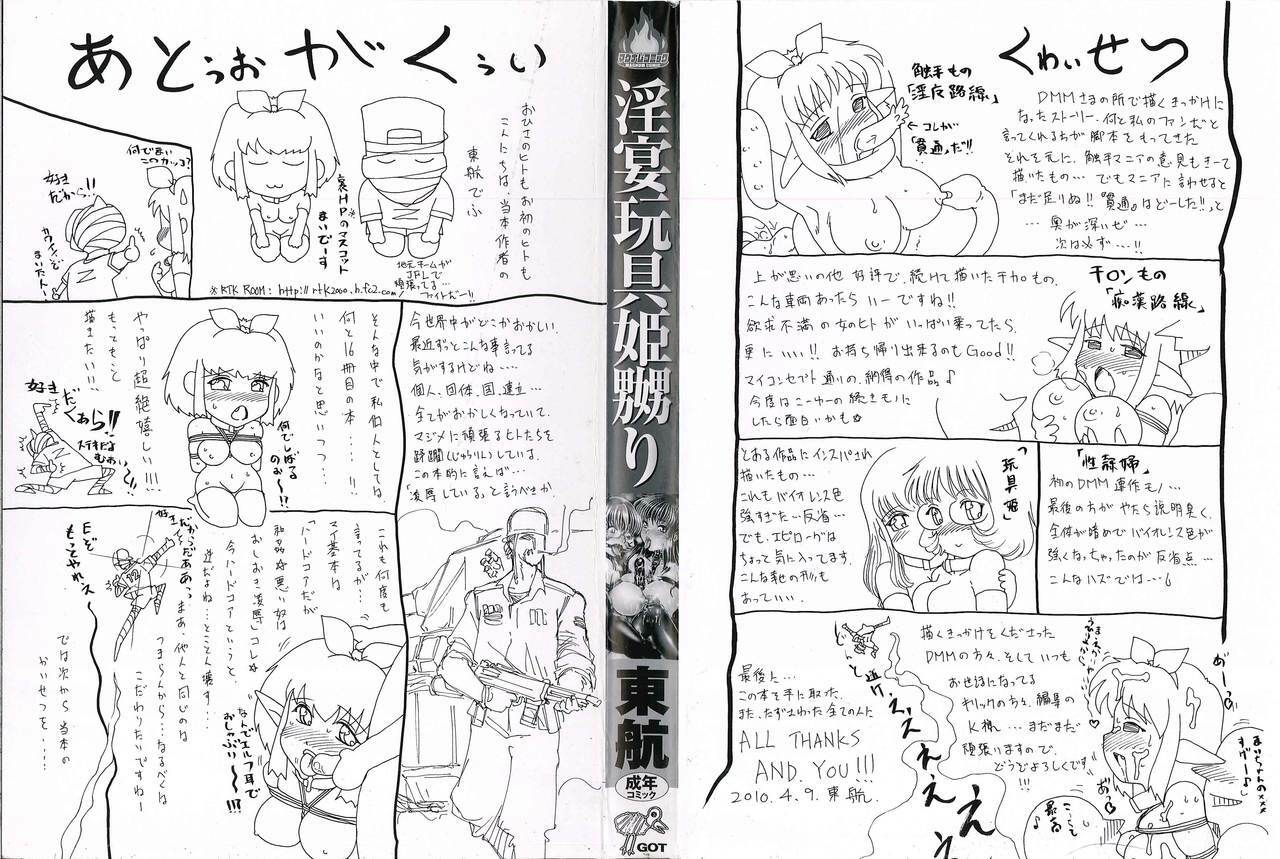 あとぅおがくぅい
おひさのヒトもお初のヒトも
こんにちは、当本作者の
東航でふ
哀HPのマスコット
まいでーす
地元チームが
JFLで
頑張ってる…
ファイトだー!!
※RTK ROOM: http://rtk2000.h.fc2.com/
何でまい
このカッコ?
好き
だから!!
今世界中がどこかおかしい。
最近ずっとこんな事言ってる
気がするけどね….
個人、団体、国、連立…
全てがおかしくなっていて、
マジメに頑張るヒトたちを
蹂躙(じゅうりん)している。
この本的に言えば…
「凌辱している。」と言うべきか
そんな中で私個人としては
何と16冊目の本…!!
いいのかなと思いつつ…
やっぱり超絶嬉しい!!!
もっともっと
描きたい!!
何でしばる
のぉ〜!?
好き
だくぁら!!
ステキだよ
むぉぃ〜!!
これも何度も
言ってるが…
マイ基本は
「ハードコアだが
和姦☆悪い奴は
おしおき凌辱」コレ☆
今ハードコアというと、
逆だよね…とことん壊す…
まあ、他人と同じのは
つまらんから…なるべくは
こだわりたいですねー
では次から当本の
かいせつを….
好き
だからだああっっ
Eぞ
もっとやれェ〜
なんでエルフ耳で
おしゃぶり〜!!?
マグナムコミック
MAGNUM COMIC
淫宴玩具姫嬲り
東航
成年
コミック
GOT
くわいせつ
触手もの
「淫虐路線」
← コレが
「貫通」だ!!
DMMさまの所で描くきっかけに
なったストーリー。何と私のファンだと
言ってくれる方が脚本をもってきた
それを元に、触手マニアの意見もきーて
描いたもの… でもマニアに言わせると
「まだ足りぬ!!『貫通』はどーした!!」と
… 奥が深いぜ …
次は必ず…!!
チカンもの
「痴漢路線」
上が思いの他好評で、続けて描いたチカンもの。
こんな車両あったらいーですね!!
欲求不満の女のヒトがいっぱい乗ってたら、
更にいい!! お持ち帰り出来るのもGood!!
マイコンセプト通りの、納得の作品♪
今度はこーゆーの続きものに
したら面白いかも☆
「玩具姫」
とある作品にインスパされ
描いたもの…
これもバイオレンス色
強すぎた…反省…
でも、エピローグは
ちょって気に入ってます。
こんな愛の形も
あっていい…
初のDMM連作もの…
最後の方がやたら説明臭く、
全体が暗めでバイオレンス色が
強くなっちゃったのが反省点…
こんなハズでは…
描くきっかけをくださった
DMMの方々、そしていつも
お世話になってる
キリックの方々、編集の
K様 … まだまだ
頑張りますので、
どうぞよろしくです
最後に…
この本を手に取った、
また、たずさわった全ての人に
ALL THANKS
AND YOU!!!
2010.4.9. 東航.
と逃げ
ェェスえぇえぇ
あ゛ーっ